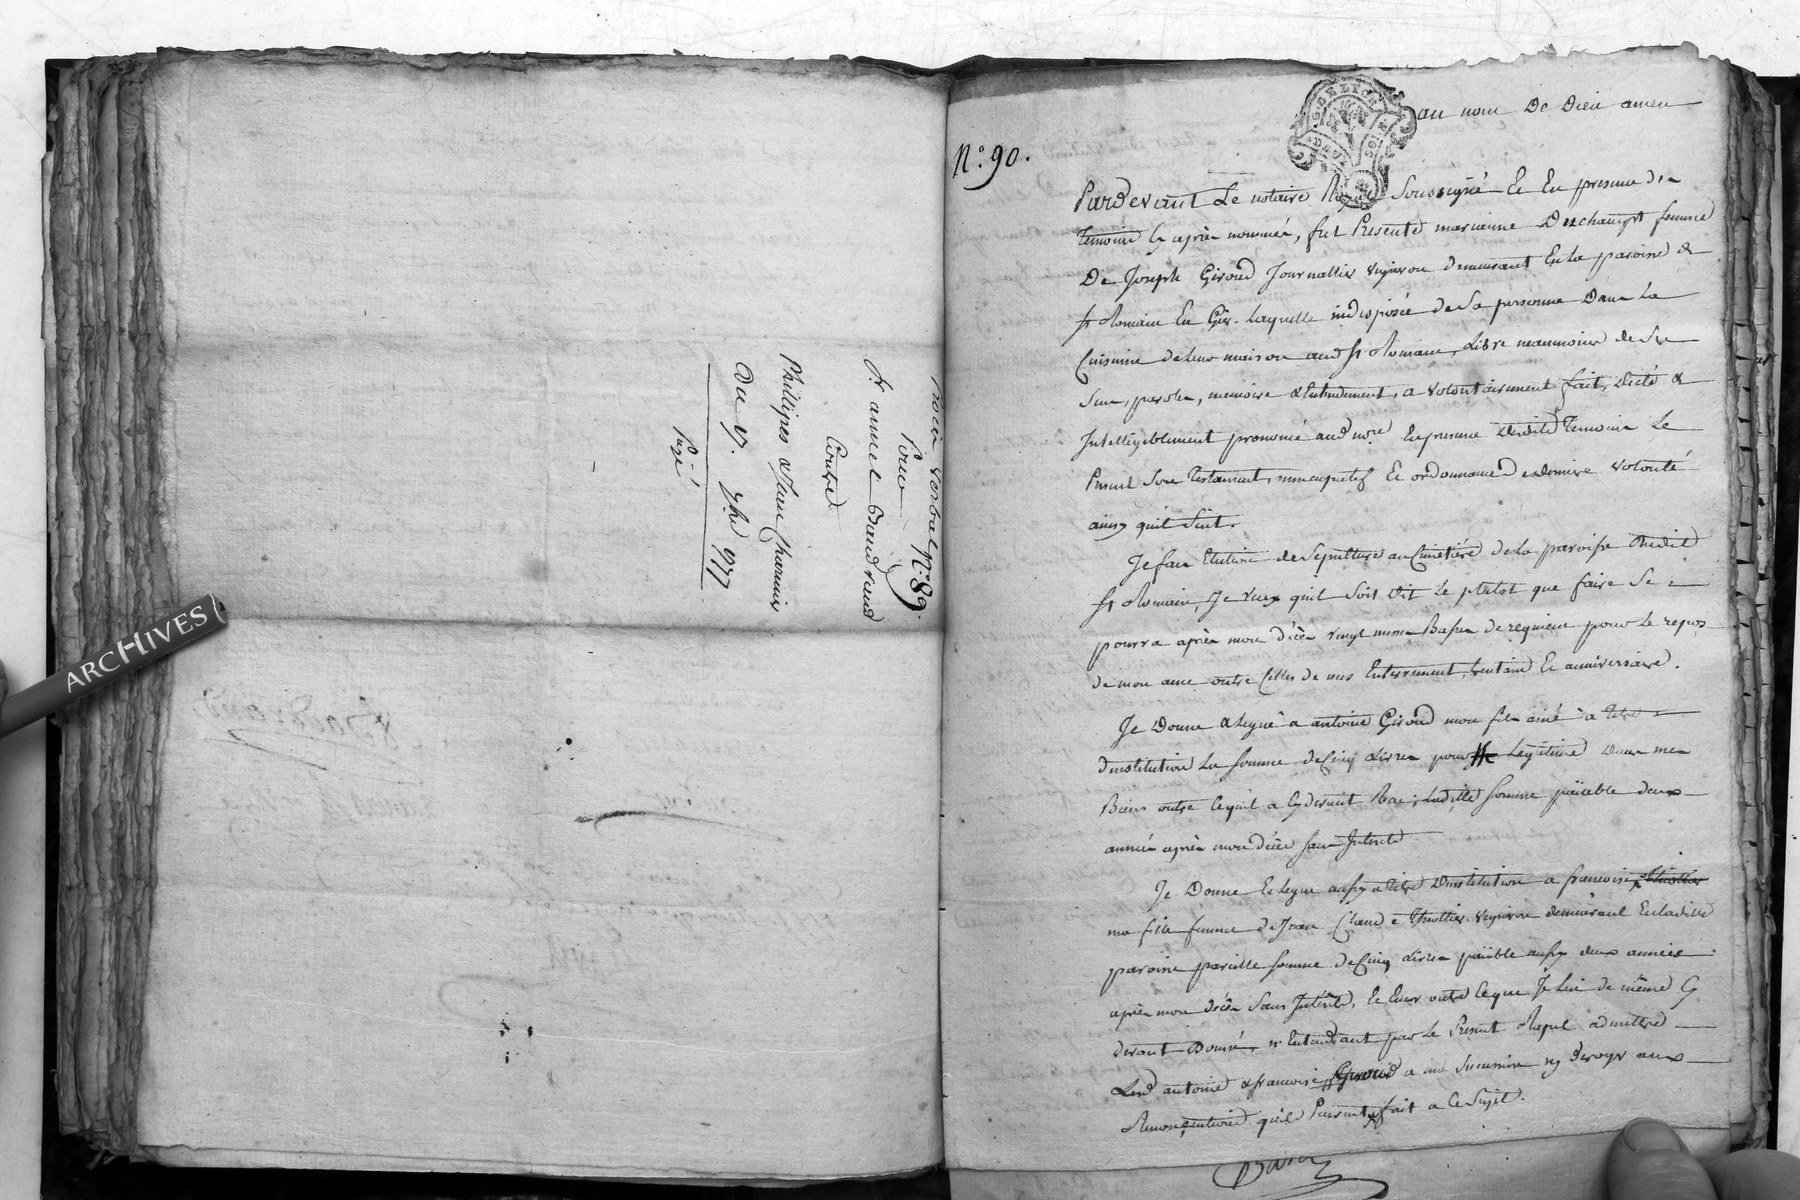 verbal N.° 89.
Pour
s.r amuel Baudrand
Contre
Phillipes & Jean Charmier
Du 17. 7bre 1777
ARCHIVES
G. DE LYON
au nom De Dieu amen
N.° 90.
Pardevant Le notaire Royal Soussigné Et En presence des
temoins Cy après nommés, fut Presente marianne Deschampt femme
De Joseph Giroud Journallier vigneron demeurant En la paroisse de
St Romain En Gier. Laquelle indisposée de Sa personne Dans La
Cuisine de Leur maison aud St Romain, Libre neanmoins de Ses
Sens, parolle, memoire & Entendement, a volontairement fait, dicté &
Intelligiblement prononcé aud nore En presence desdits Temoins Le
Present Son Testament, nuncupatif Et ordonnance de derniere volonté
ainsy quil Suit.
Je fais Election de Sepulture au Cimetière de La paroisse Dudit
St Romain, Je veux quil Soit dit Le plutot que faire Se
pourra après mon décès vingt messes Basses de requiem pour Le repos
de mon ame outre Celles de mes Enterrement, quarantaine Et anniversaire.
Je Donne & Legue a antoine Giroud mon fils ainé a titre
D'institution La Somme de Cinq Livres pour Sa Legitime Dans mes
Biens outre Ce quil a Cy devant Recu, Ladite Somme païable deux
années après mon décès Sans Interets
Je Donne Et Legue aussy a titre D'institution a francoise Thiollier
ma fille femme de Jean Claude Thiollier vigneron demeurant En ladite
paroisse pareille Somme de Cinq Livres païable aussy deux années
après mon décès Sans Interets, Et Ce outre Ce que Je Lui ai de même Cy
devant Donné, n'Entendant par Le Present Rapel admettre
Lesd antoine & francoise Giroud a ma Succession ny deroger aux
Renonciations quils Peuvent avoir fait a Ce Sujet.